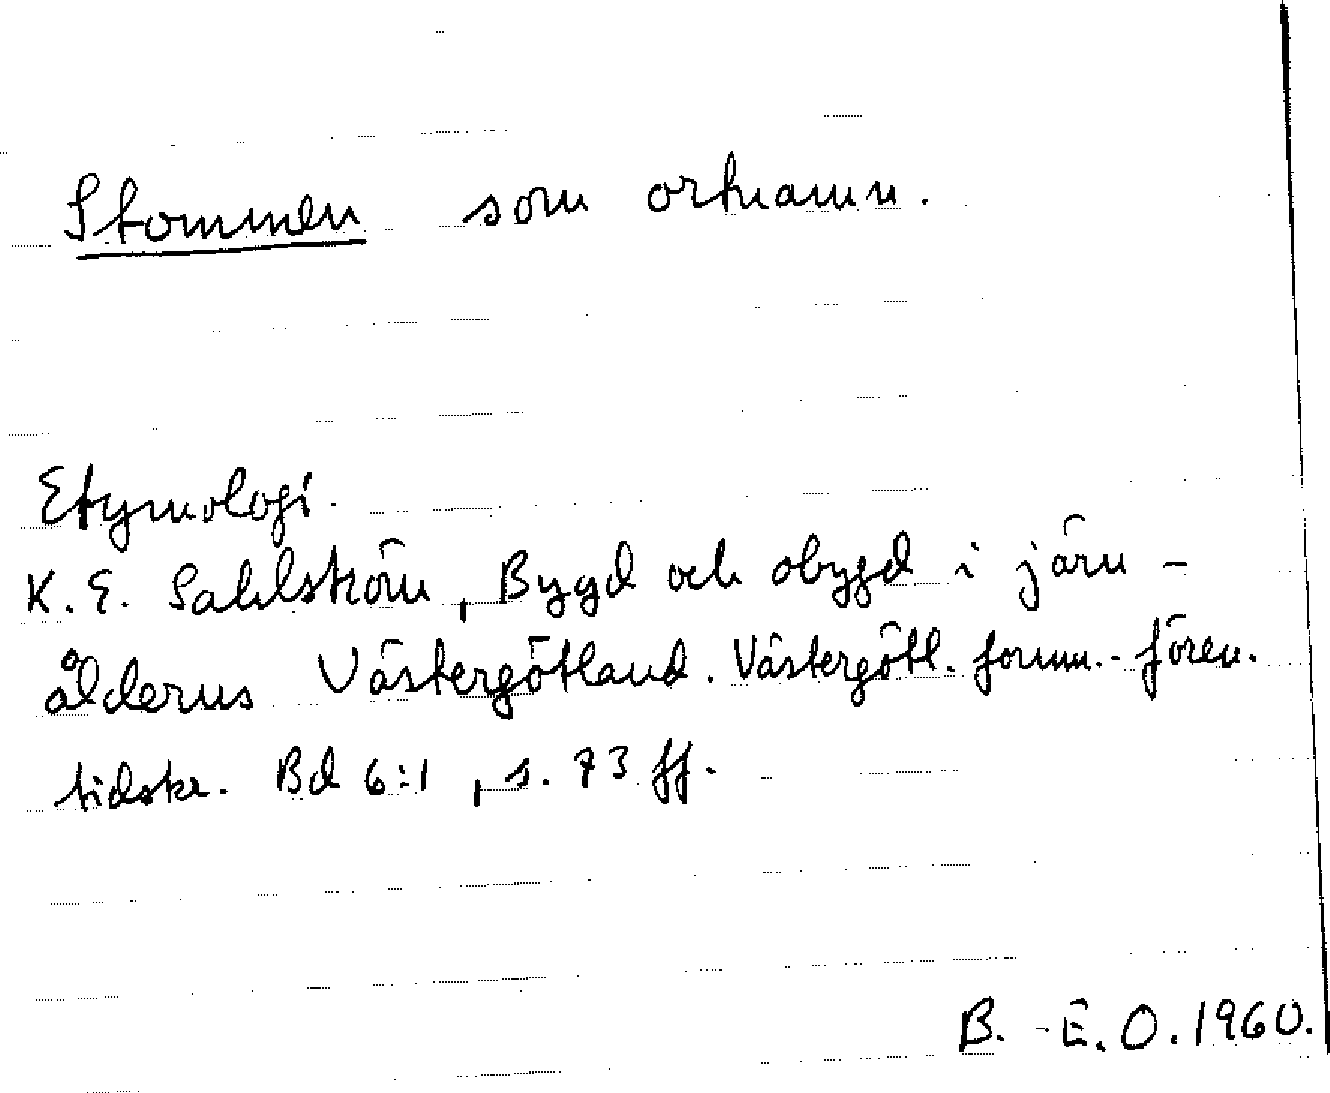 Stommen som ortnamn.
Etymologi.
K. E. Sahlström, Bygd och obygd i järn-
ålderns Västergötland. Västergötl. fornm.-fören.
tidskr. Bd 6:1, s. 73 ff.
B.-E. O. 1960.